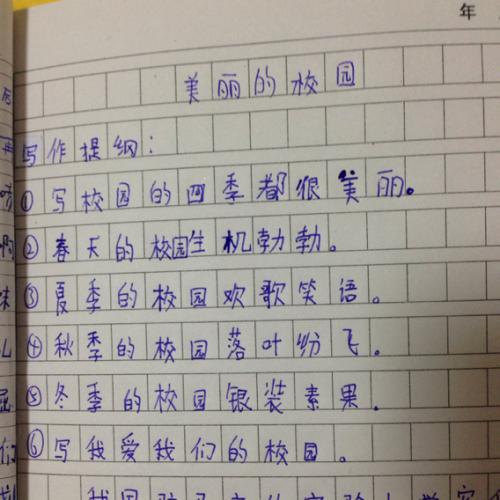 年
美丽的校园
写作提纲：
①写校园的四季都很美丽。
②春天的校园生机勃勃。
③夏季的校园欢歌笑语。
④秋季的校园落叶纷飞。
⑤冬季的校园银装素果。
⑥写我爱我们的校园。